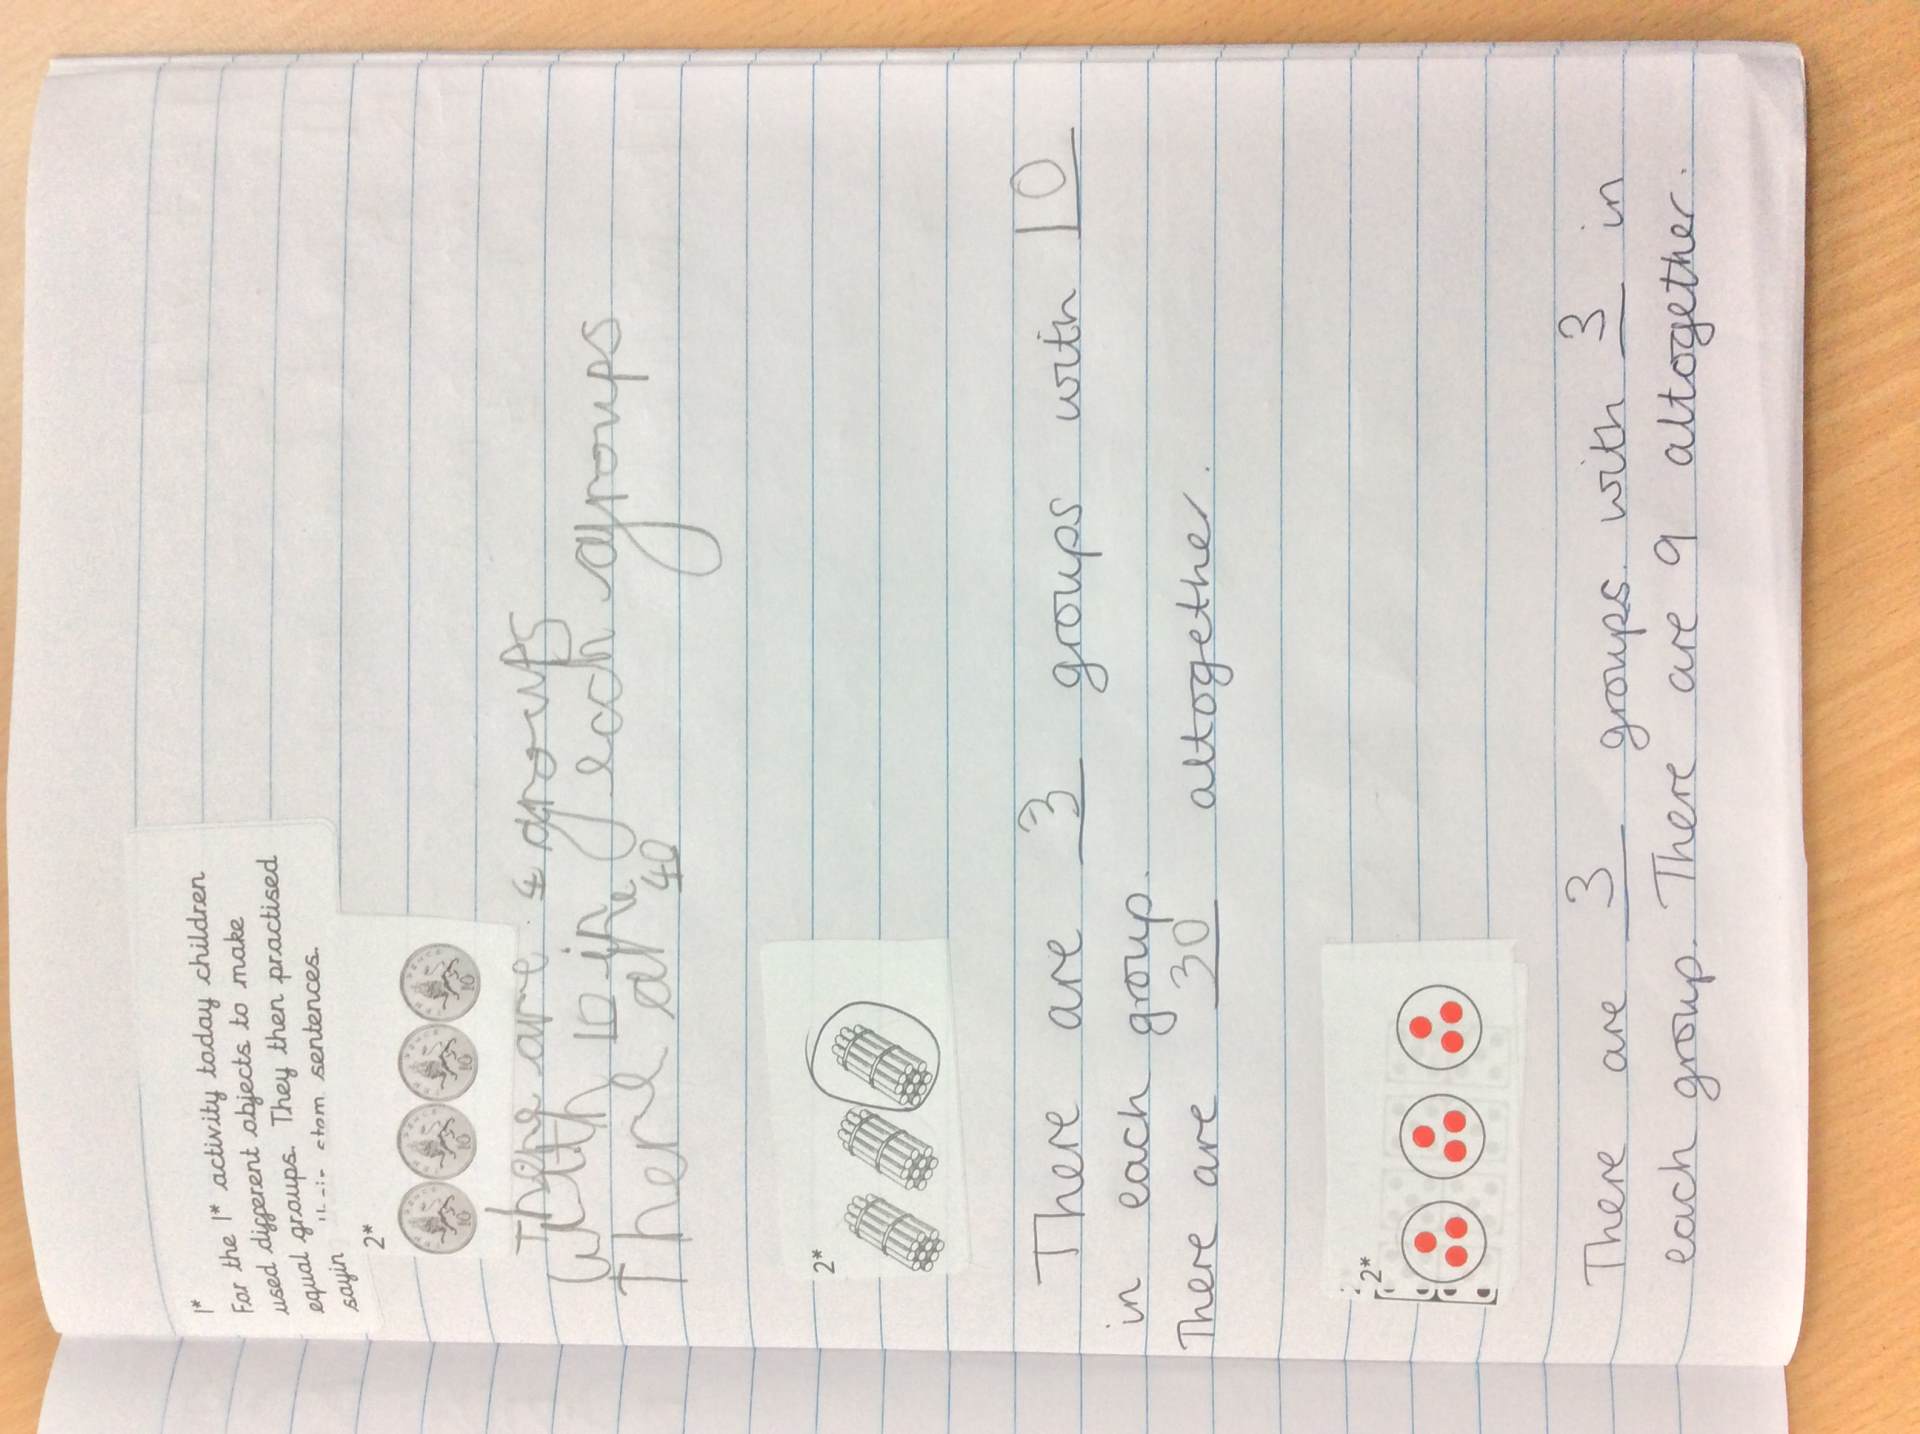 1*
For the 1* activity today children
used different objects to make
equal groups. They then practised
sayin stem sentences.
2*
There are 4 groups
with 10 in each groups
There are 40
2*
There are 3 groups with 10
in each group.
There are 30 altogether.
2*
There are 3 groups with 3 in
each group. There are 9 altogether.